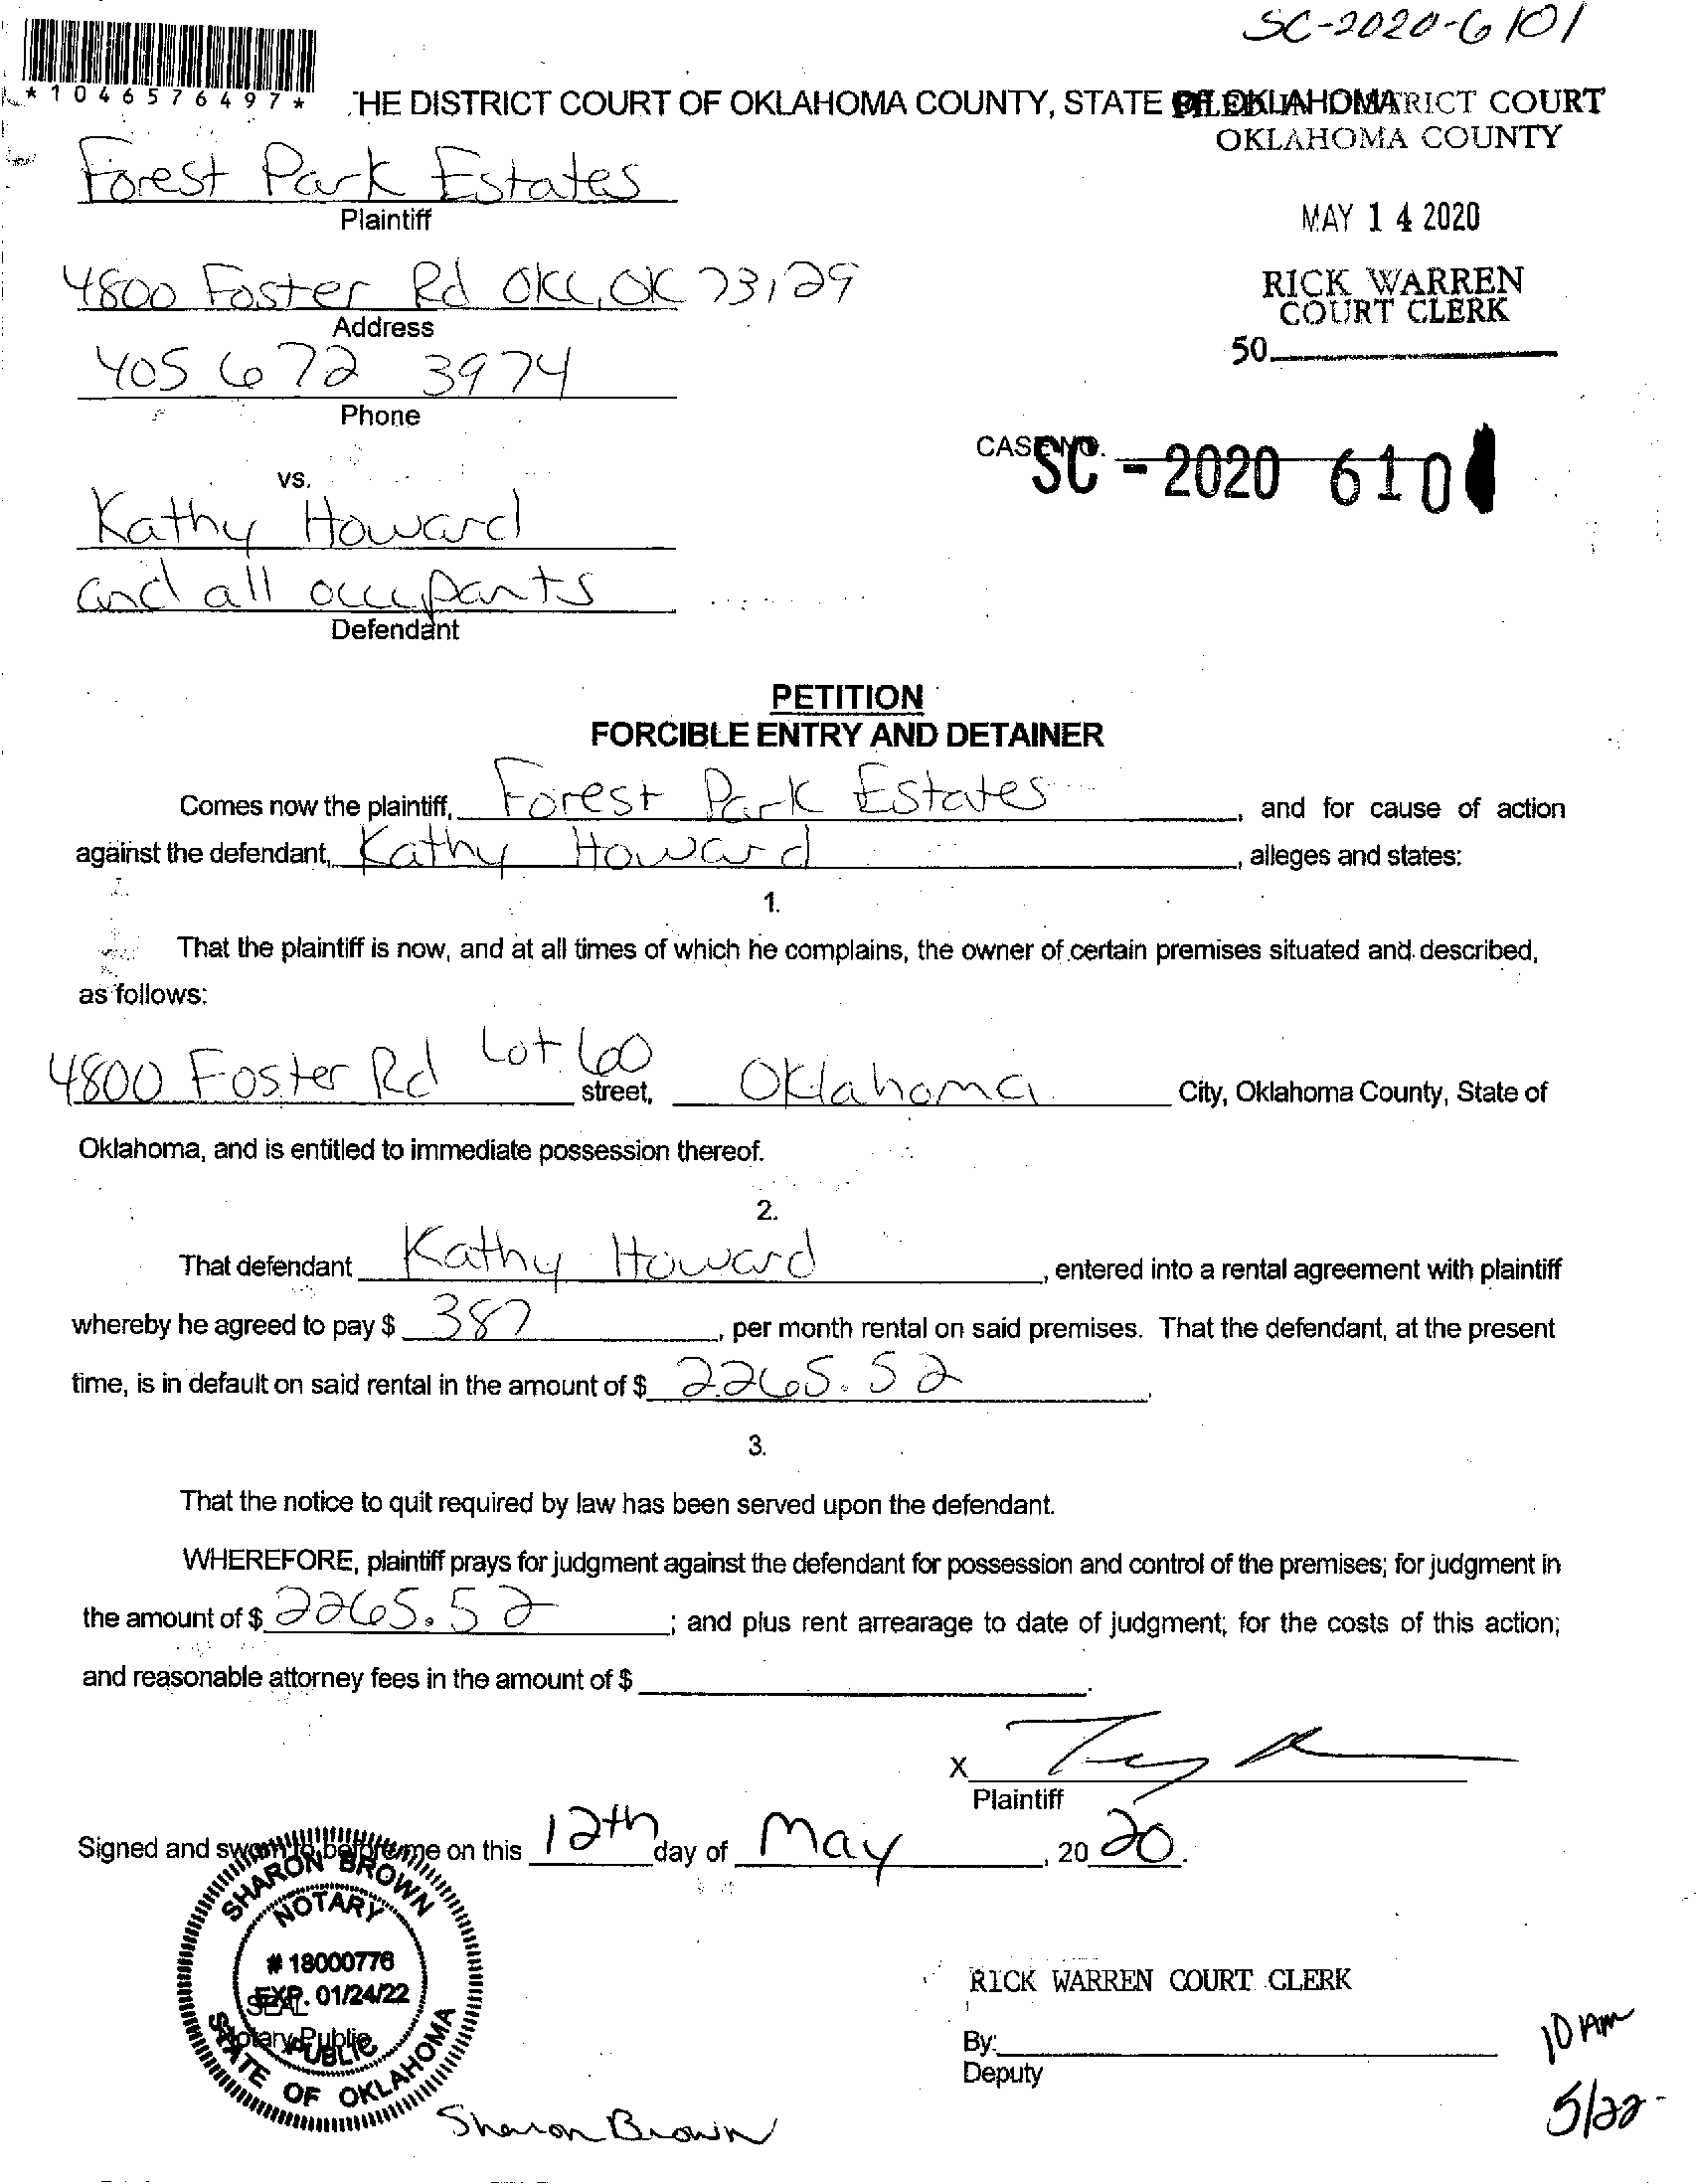 SC-2020-6101
*1046576497*
THE DISTRICT COURT OF OKLAHOMA COUNTY, STATE OF OKLAHOMA
FILED IN DISTRICT COURT
OKLAHOMA COUNTY
Forest Park Estates
Plaintiff
MAY 14 2020
4800 Foster Rd OKC, OK 73129
Address
RICK WARREN
COURT CLERK
405 672 3974
Phone
50.
CASE NO.
SC - 2020 6101
vs.
Kathy Howard
and all occupants
Defendant
PETITION
FORCIBLE ENTRY AND DETAINER
Comes now the plaintiff, Forest Park Estates, and for cause of action
against the defendant, Kathy Howard, alleges and states:
1.
That the plaintiff is now, and at all times of which he complains, the owner of certain premises situated and described,
as follows:
4800 Foster Rd Lot 60 street, Oklahoma City, Oklahoma County, State of
Oklahoma, and is entitled to immediate possession thereof.
2.
That defendant Kathy Howard, entered into a rental agreement with plaintiff
whereby he agreed to pay $ 387, per month rental on said premises. That the defendant, at the present
time, is in default on said rental in the amount of $ 2265.52.
3.
That the notice to quit required by law has been served upon the defendant.
WHEREFORE, plaintiff prays for judgment against the defendant for possession and control of the premises; for judgment in
the amount of $ 2265.52; and plus rent arrearage to date of judgment; for the costs of this action;
and reasonable attorney fees in the amount of $ .
X
Plaintiff
Signed and sworn to before me on this 12th day of May, 2020.
SHARON BROWN
NOTARY
# 18000776
EXP. 01/24/22
SEAL
Notary Public
PUBLIC
STATE OF OKLAHOMA
Sharon Brown
RICK WARREN COURT CLERK
By:
Deputy
10 AM
5/22-